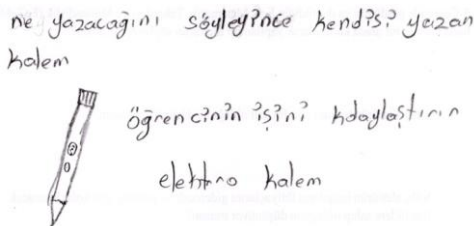 ne yazacağını söyleyince kendisi yazan
kalem
öğrencinin işini kolaylaştırın
elektro kalem